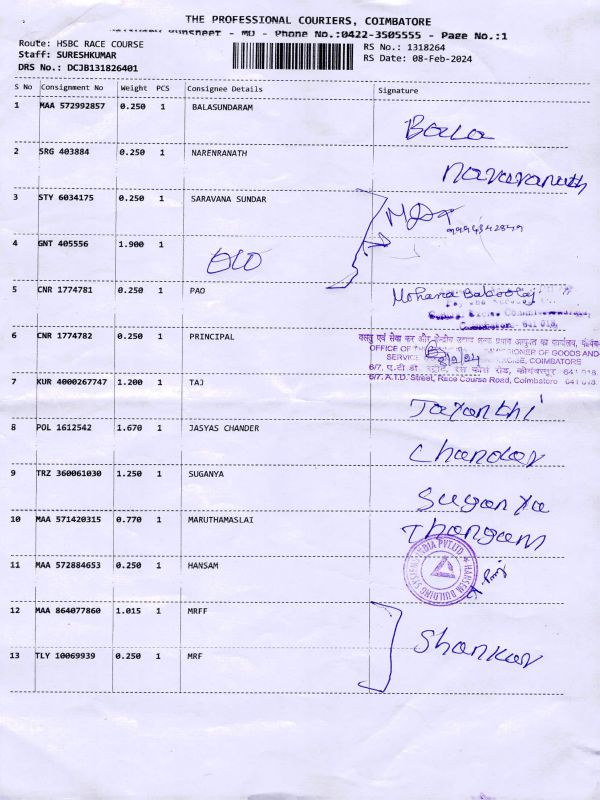 THE PROFESSIONAL COURIERS, COIMBATORE
- MU - Phone No.:0422-3505555 - Page No.:1
Route: HSBC RACE COURSE
Staff: SURESHKUMAR
DRS No.: DCJB131826401
RS No.: 1318264
RS Date: 08-Feb-2024
S No Consignment No Weight PCS Consignee Details Signature
1 MAA 572992857 0.250 1 BALASUNDARAM Bala
2 SRG 403884 0.250 1 NARENRANATH
3 STY 6034175 0.250 1 SARAVANA SUNDAR
4 GNT 405556 1.900 1
5 CNR 1774781 0.250 1 PAO
6 CNR 1774782 0.250 1 PRINCIPAL
8/2/24
6/7, A.T.D. Street, Race Course Road, Coimbatore 641 018.
7 KUR 4000267747 1.200 1 TAJ Jayanthi
8 POL 1612542 1.670 1 JASYAS CHANDER Chandar
9 TRZ 360061030 1.250 1 SUGANYA Suganya
10 MAA 571420315 0.770 1 MARUTHAMASLAI Thangam
11 MAA 572884653 0.250 1 HANSAM
12 MAA 864077860 1.015 1 MRFF
Shankar
13 TLY 10069939 0.250 1 MRF